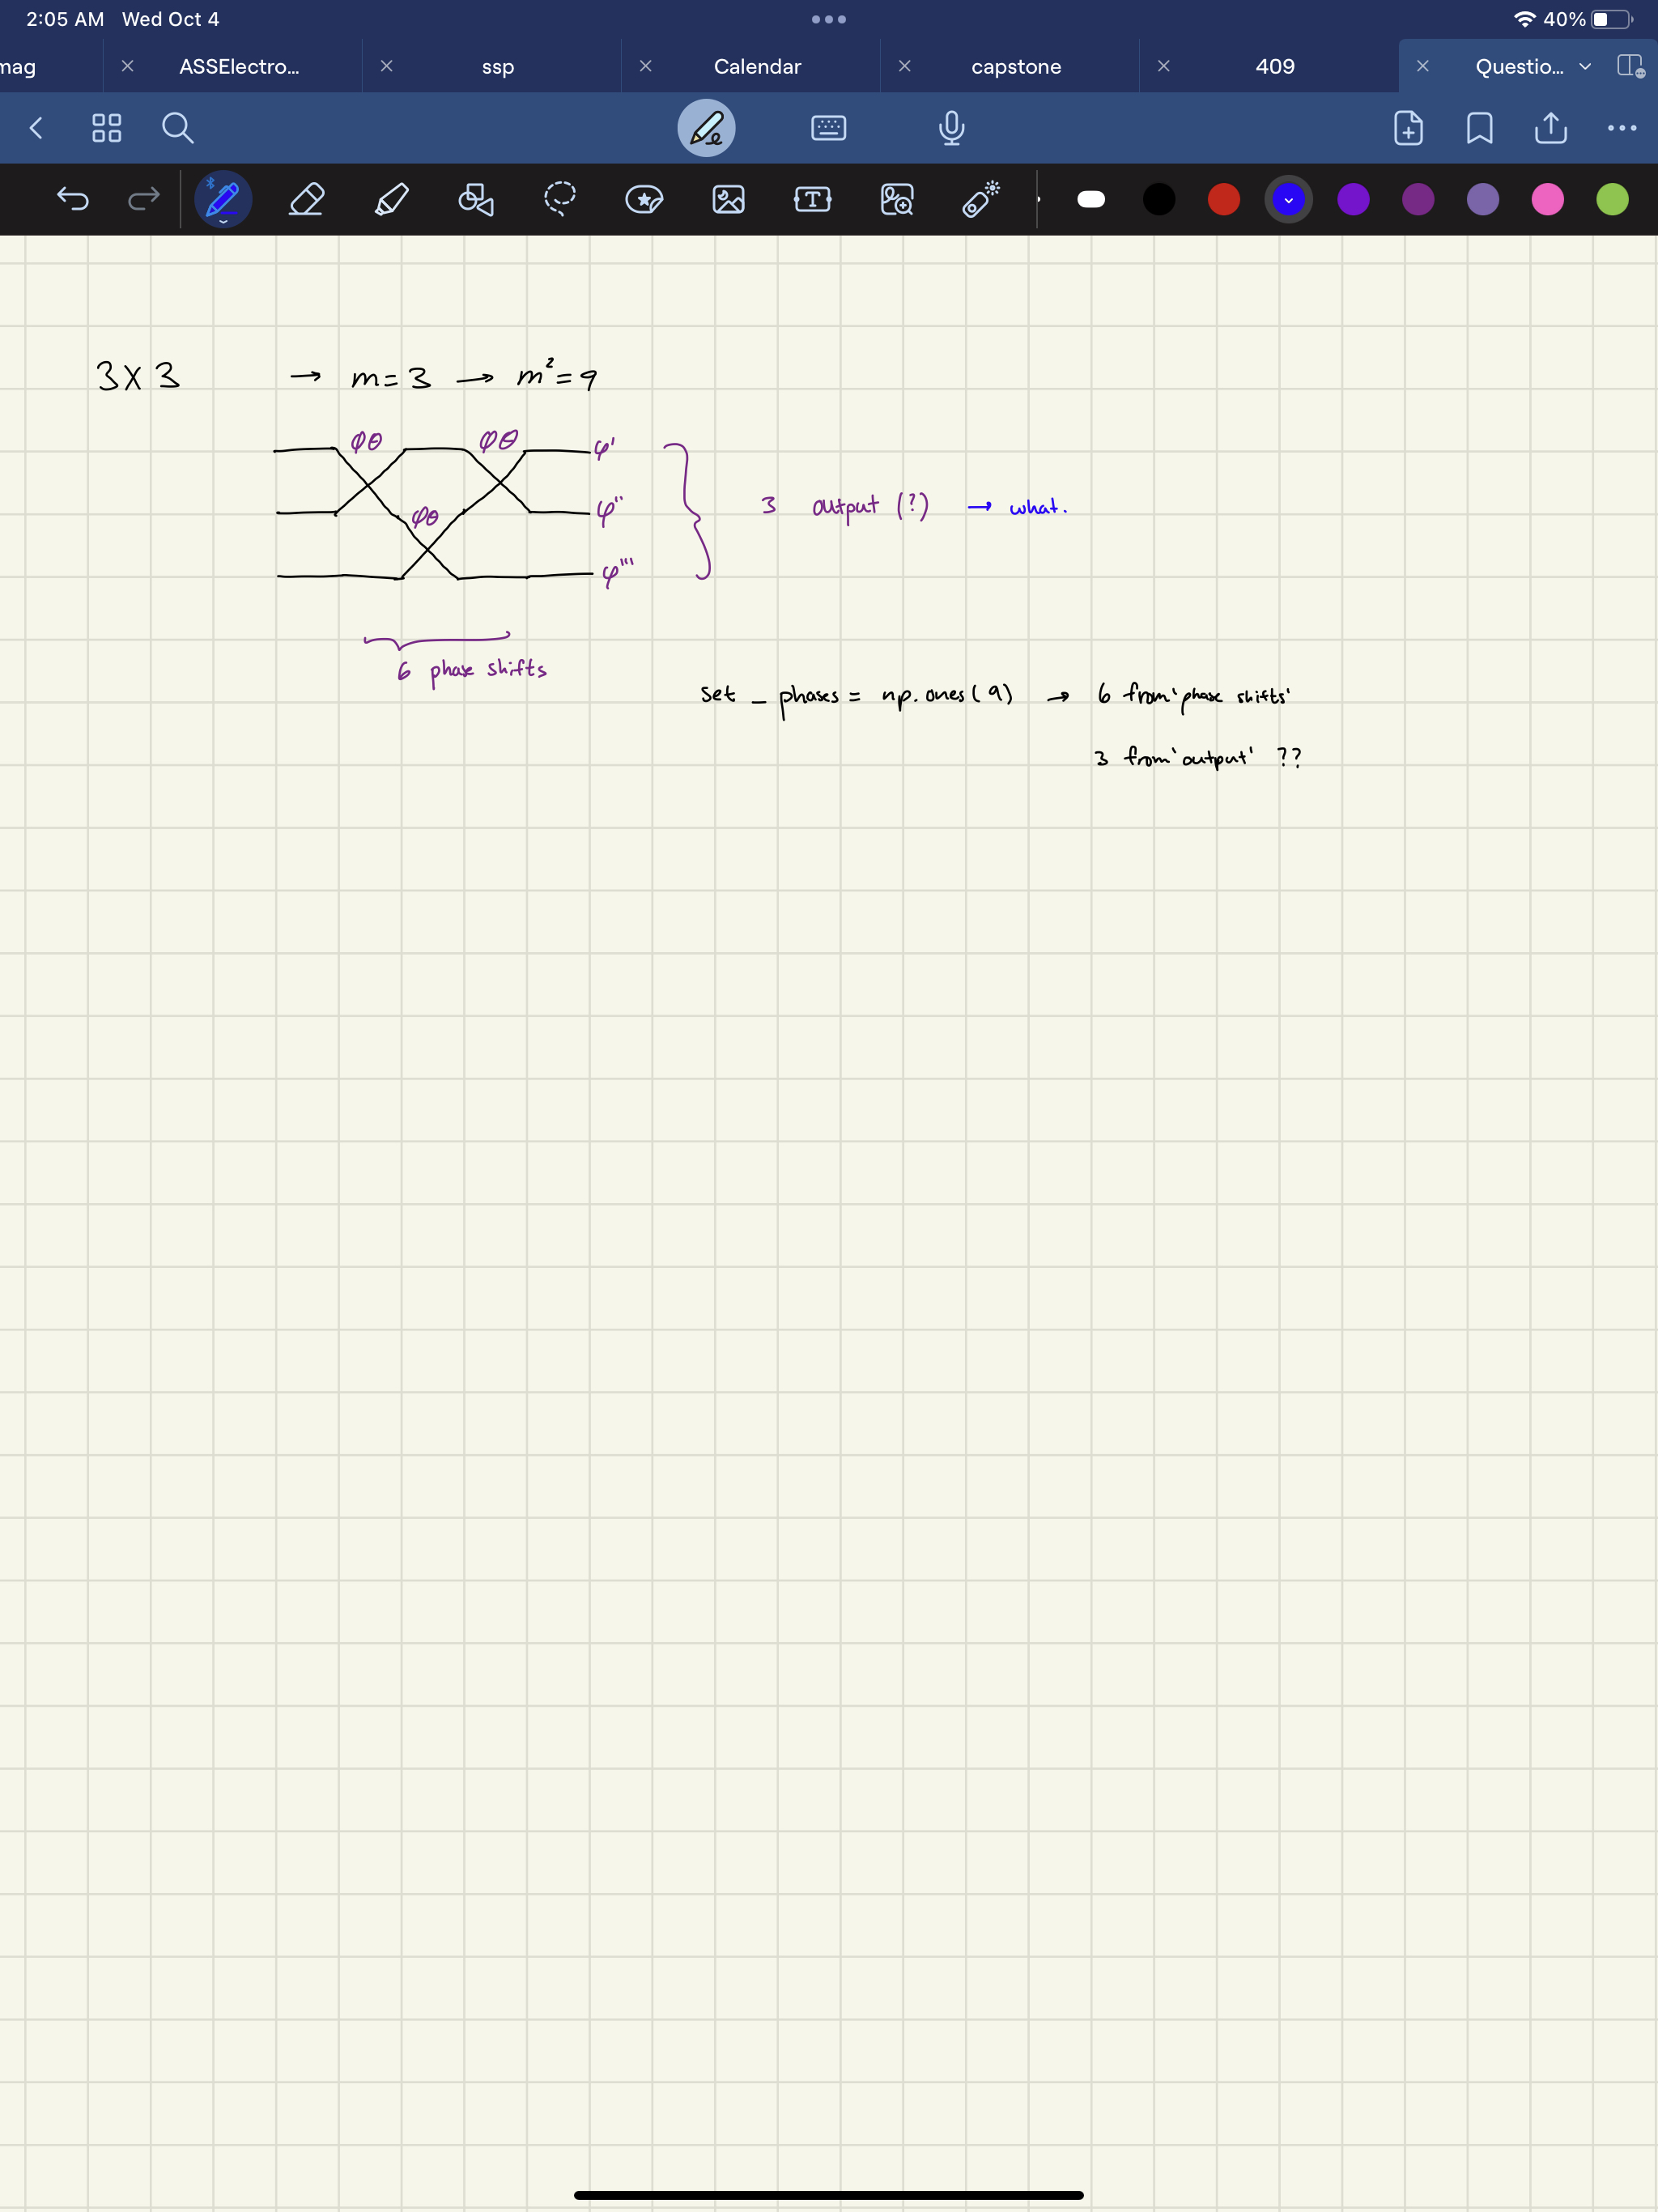 2:05 AM Wed Oct 4 40%
mag ASSElectro... ssp Calendar capstone 409 Questio...
3x3 → m=3 → m²=9
φθ φθ φ'
φθ φ''
φ'''
3 output (?) → what.
6 phase shifts
set_phases = np.ones(9) → 6 from 'phase shifts'
3 from 'output' ??